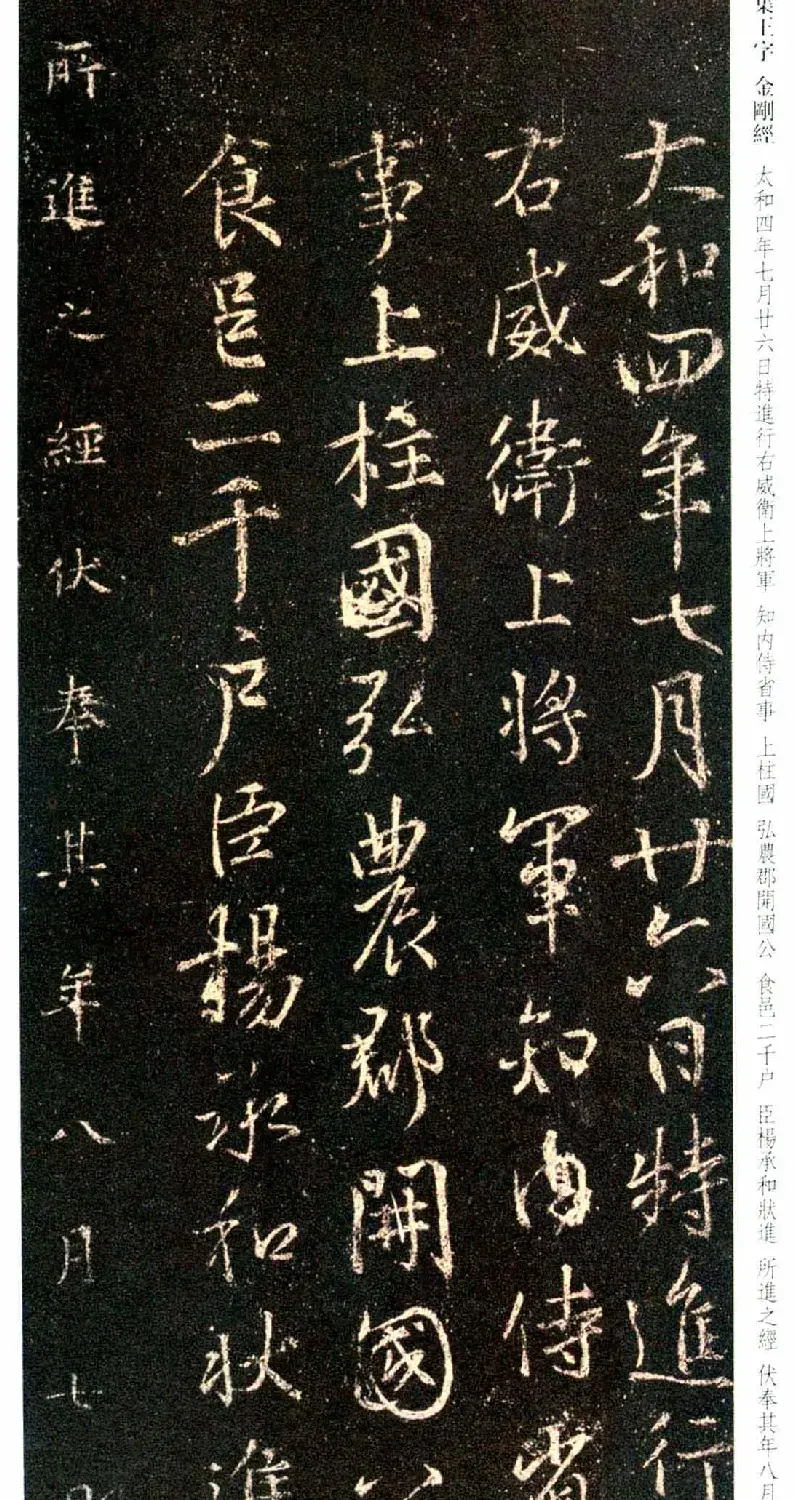 集王字 金剛經 太和四年七月廿六日特進行右威衛上將軍 知内侍省事 上柱國 弘農郡開國公 食邑二千户 臣楊承和狀進 所進之經 伏奉其年八月
大和四年七月廿六日特進行
右威衛上將軍知内侍省
事上柱國弘農郡開國公
食邑二千户臣楊承和狀進
所進之經伏奉其年八月七日